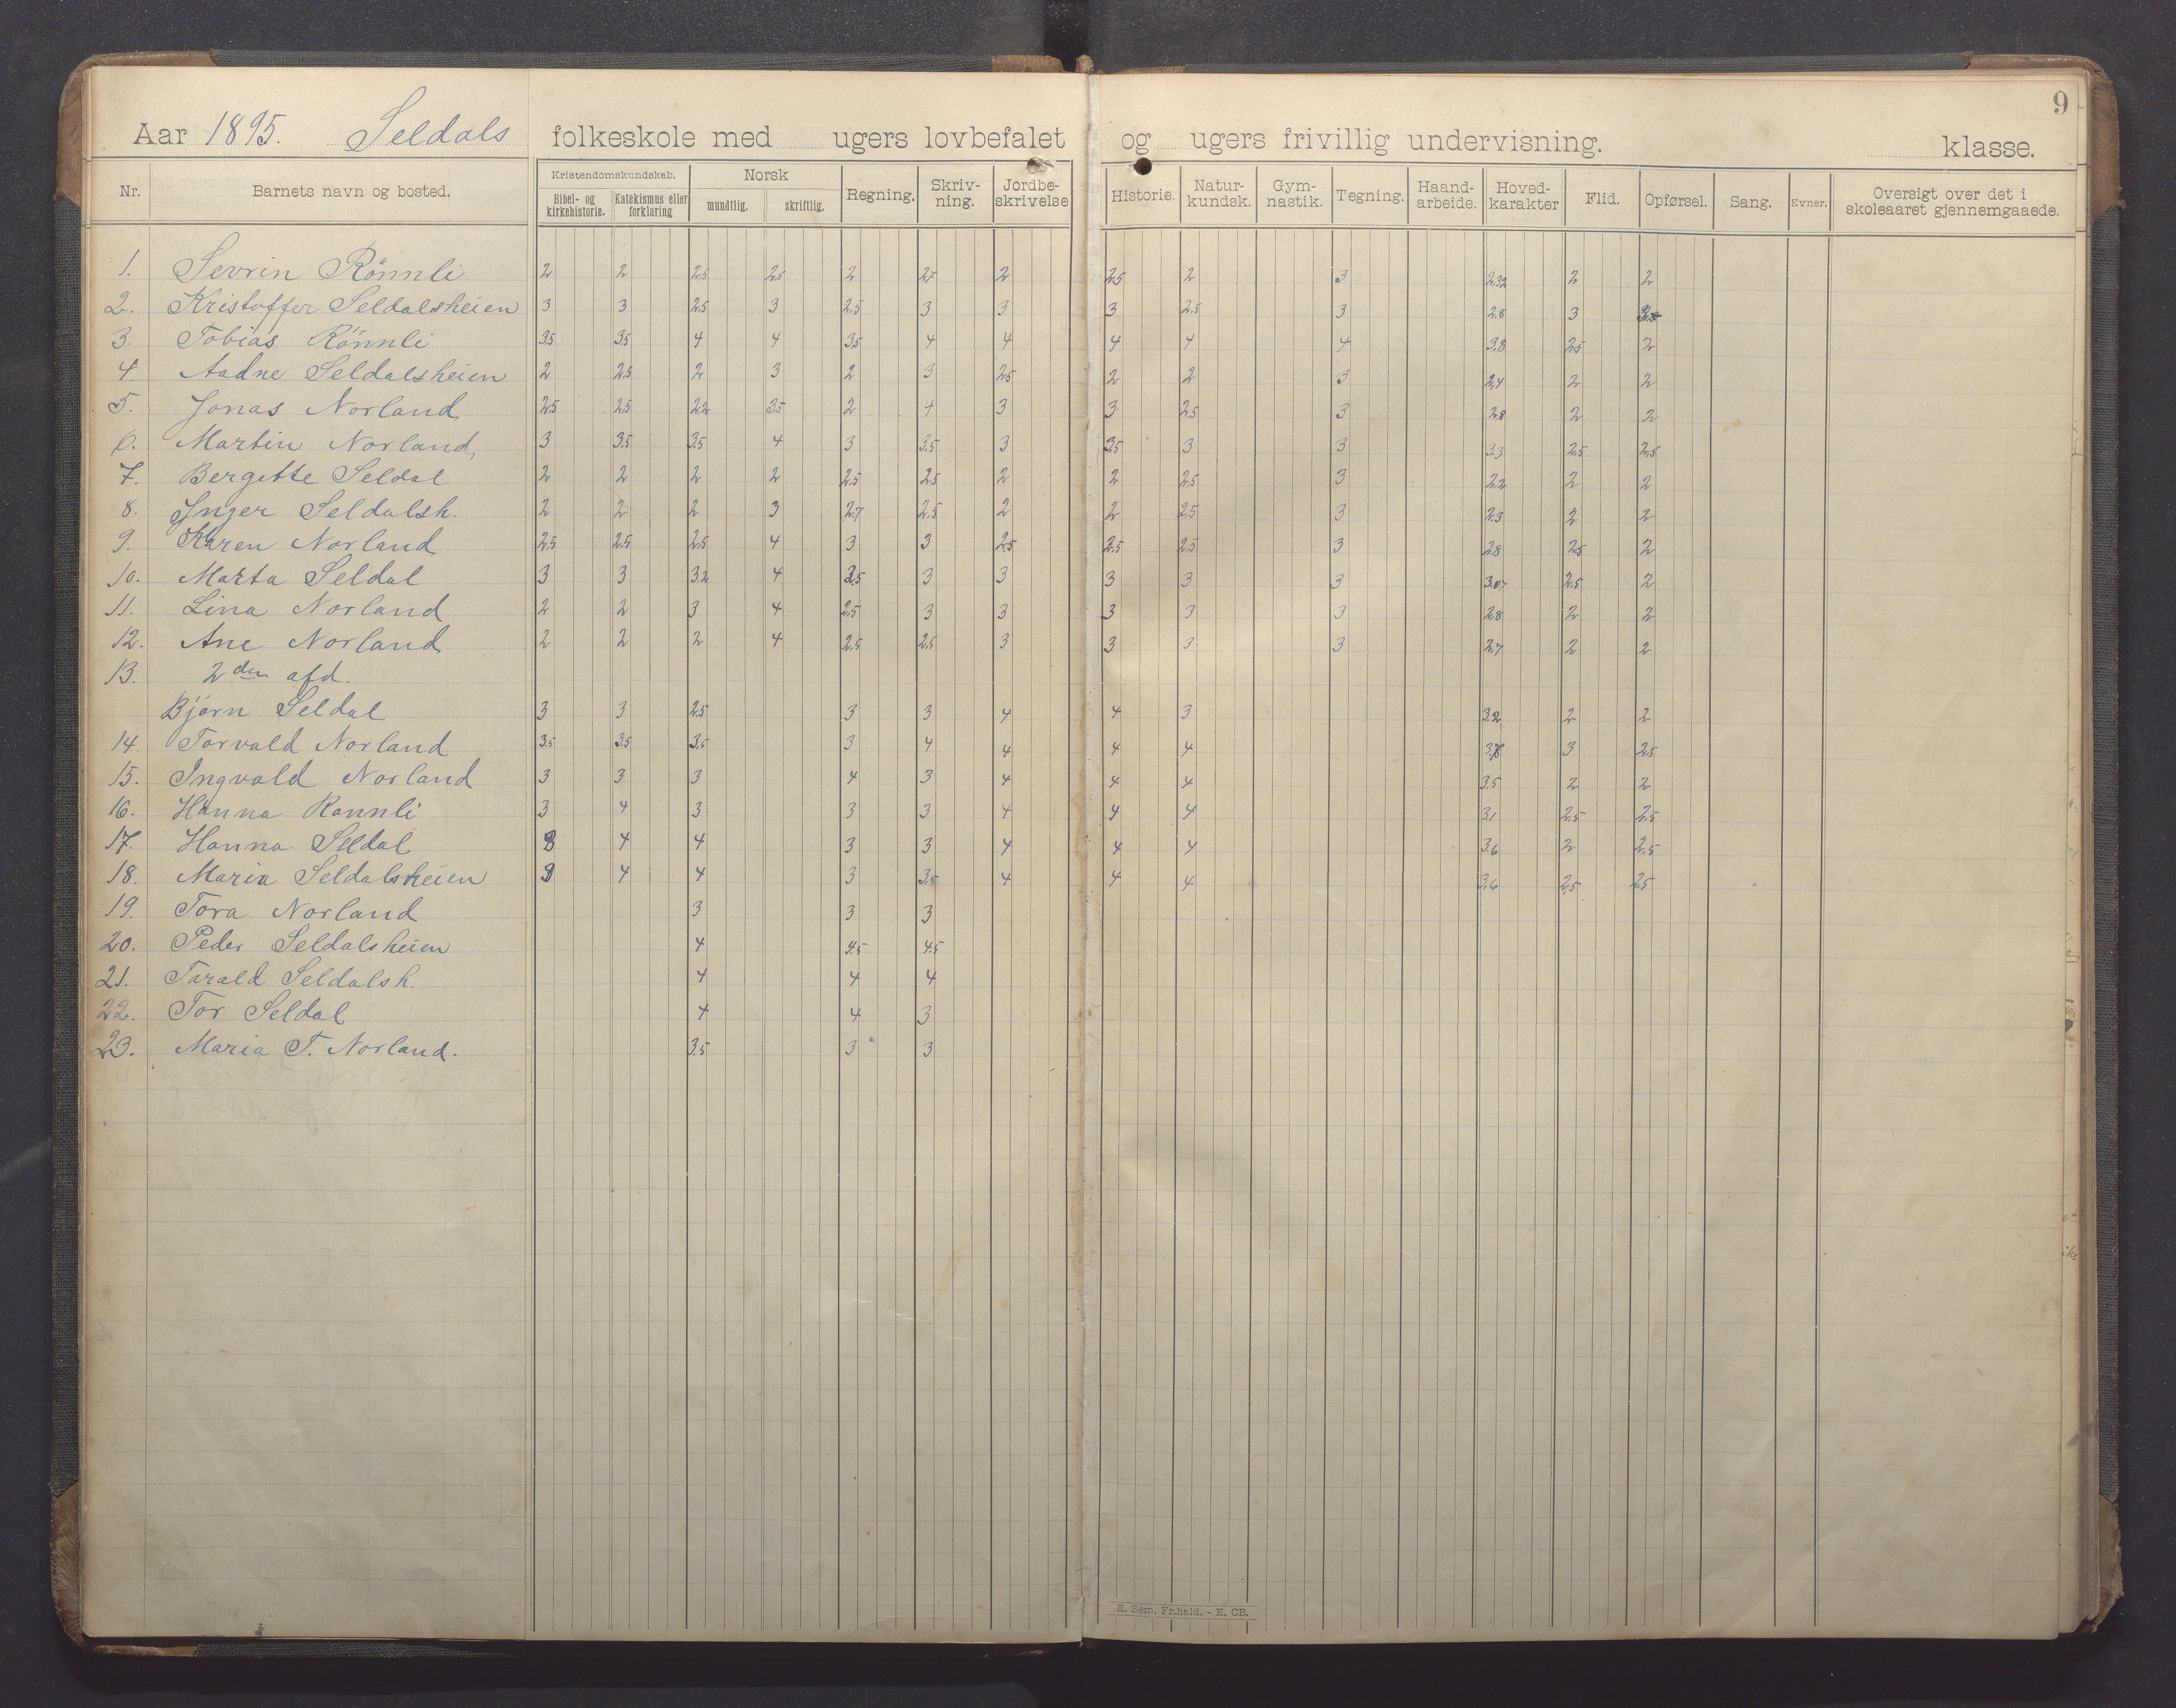 9
Aar 1895. Seldals folkeskole med ugers lovbefalet og ugers frivillig undervisning. klasse.
Nr. Barnets navn og bosted. Kristendomskundskab. Bibel- og kirkehistorie. Katekismus eller forklaring Norsk mundtlig. skriftlig. Regning. Skriv-ning. Jordbe-skrivelse Historie. Natur-kundsk. Gym-nastik. Tegning. Haand-arbeide. Hoved-karakter Flid. Opførsel. Sang. Evner. Oversigt over det i skoleaaret gjennemgaaede.
1. Sevrin Rönnli 2 2 2.5 2.5 2 2.7 2 2.5 2 3 2.32 2 2
2. Kristoffer Seldalsheien 3 3 2.5 3 2.5 3 3 3 2.5 3 2.8 3
3. Tobias Rönnli 3.5 3.5 4 4 3.5 4 4 4 4 4 3.8 2.5 2
4. Aadne Seldalsheien 2 2.5 2 3 2 3 2.5 2 2 3 2.4 2 2
5. Jonas Norland 2.5 2.5 2.2 3.5 2 4 3 3 2.5 3 2.8 2 2
6. Martin Norland, 3 3.5 3.5 4 3 3.5 3 3.5 3 3 3.3 2.5 2.5
7. Bergitte Seldal 2 2 2 2 2.5 2.5 2 2 2.5 3 2.2 2 2
8. Inger Seldalsh. 2 2 2 3 2.7 2.5 2 2 2.5 3 2.3 2 2
9. Karen Norland 2.5 2.5 2.5 4 3 3 2.5 2.5 2.5 3 2.8 2.5 2
10. Marta Seldal 3 3 3.2 4 2.5 3 3 3 3 3 3.07 2.5 2
11. Lina Norland 2 2 3 4 2.5 3 3 3 3 3 2.8 2 2
12. Ane Norland 2 2 2 4 2.5 2.5 3 3 3 3 2.7 2 2
13. 2den afd.
Björn Seldal 3 3 2.5 3 3 4 4 3 3.2 2 2
14. Torvald Norland 3.5 3.5 3.5 3 4 4 4 4 3 2.5
15. Ingvald Norland 3 3 3 4 3 4 4 4 3.5 2 2
16. Hanna Ronnli 3 4 3 3 3 4 4 4 3.1 2.5 2.5
17. Hanna Seldal 3 4 4 3 3 4 4 4 3.6 2 2.5
18. Maria Seldalsheien 3 4 4 3 3.5 4 4 4 3.6 2.5 2.5
19. Tora Norland 3 3 3
20. Peder Seldalsheien 4 4.5 4.5
21. Tarald Seldalsh. 4 4 4
22. Tor Seldal 4 4 3
23. Maria T. Norland. 3.5 3 3
E. Sem, Fr.hald. - E. CB.